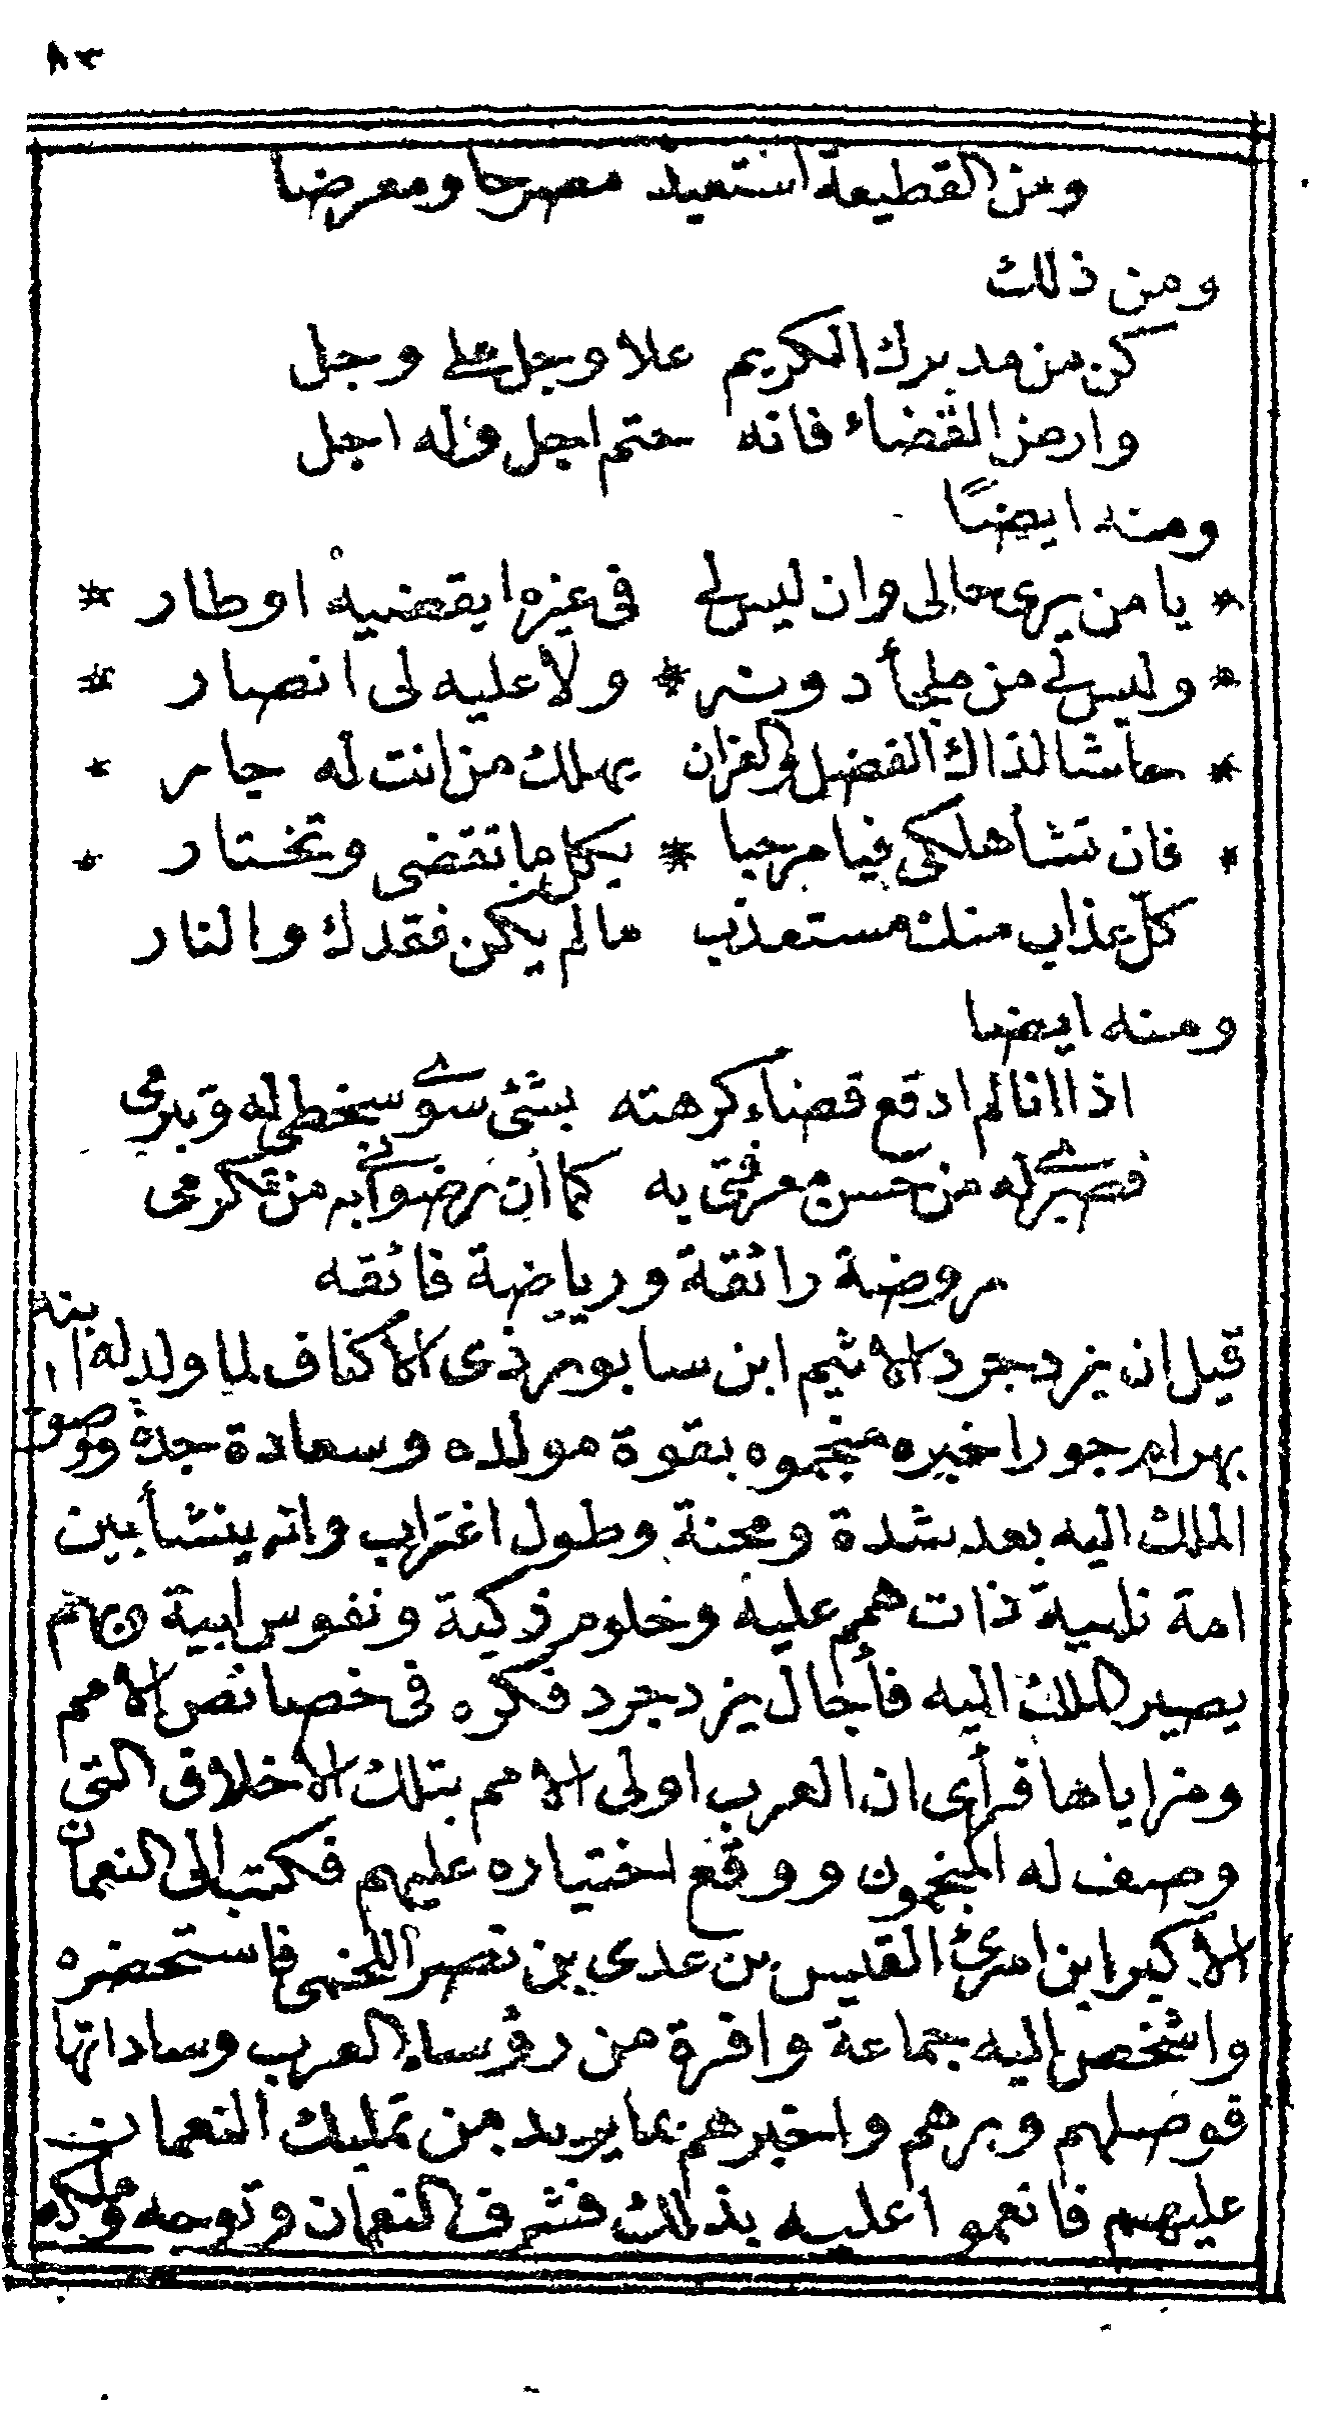 ٨٣
ومن القطيعة استعيذ مصرحا ومعرضا
ومن ذلك
كن من مدبرك الحكيم علا وجل على وجل
وارض القضاء فانه حتم اجل وله اجل
ومنه ايضًا
* يا من يرى حالى وان ليس لى فى غيره ايقضيه اوطار *
* وليس لى من ملجأ دونه * ولا عليه لى انصار *
* حاشا لذاك الفضل والعز ان يهلك من انت له جار *
* فان تشأ هلكى فيا مرحبا * بكل ما تقضى وتختار *
كلّ عذاب منك مستعذب ما لم يكن فقدك والنار
ومنه ايضا
اذا انا لم ادفع قضاء كرهته بشئ سوى سخطى له وتبرمى
فصبرى له من حسن معرفتى به كما ان رضوانى به من تكرمى
روضة رائقة ورياضة فائقه
قيل ان يزدجرد الاثيم ابن سابور ذى الاكتاف لما ولد له ابنه
بهرام جور اخبره منجموه بقوة مولده وسعادة جده وصور
الملك اليه بعد شدة ومحنة وطول اغتراب وانه ينشأ بين
امة نايية ذات همم علية وحلوم زكية ونفوس ابية
يصير الملك اليه فأجال يزدجرد فكره فى خصائص الامم
ومزاياها فرأى ان العرب اولى الامم بتلك الاخلاق التى
وصف له المنجمون ووقع اختياره عليهم فكتب الى النعمان
الاكبر ابن امرئ القيس بن عدى بن نصر اللخمى فاستحضره
واشخص اليه جماعة وافرة من رؤساء العرب وساداتها
فوصلهم وبرهم واخبرهم بما يريد من تمليك النعمان
عليهم فانعموا عليه بذلك فشرف النعمان وتوجه وملكه